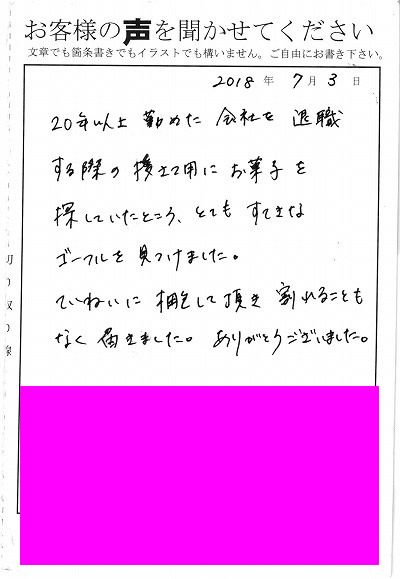 お客様の声を聞かせてください
文章でも箇条書きでもイラストでも構いません。ご自由にお書き下さい。
2018 年 7 月 3 日
20年以上 勤めた 会社を 退職
する際の 挨拶用に お菓子を
探していたところ、とても すてきな
ゴーフルを 見つけました。
ていねいに 梱包して頂き 割れることも
なく 届きました。 ありがとうございました。
切り取り線